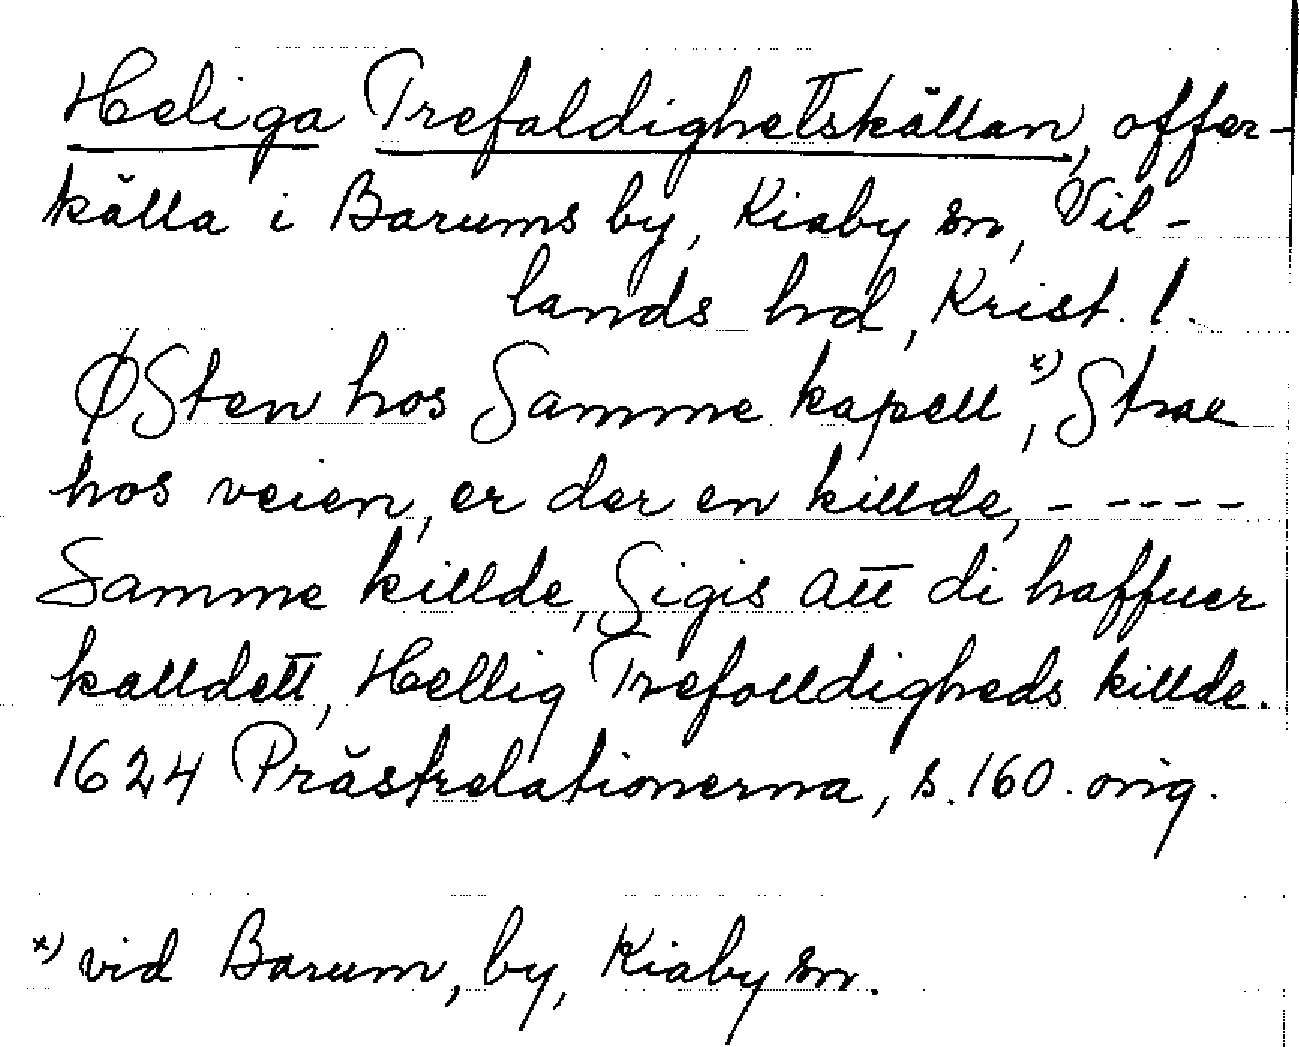 Heliga Trefaldighetskällan, offer-
källa i Barums by, Kiaby sn, Vil-
lands hd, Krist. l.
ØSten hos Samme kapell *), Strax
hos veien, er der en killde, - - - - -
Samme killde, Sigis att di haffuer
kalldett, Hellig Trefolldigheds killde.
1624 Prästrelationerna, s. 160. orig.
*) vid Barum, by, Kiaby sn.